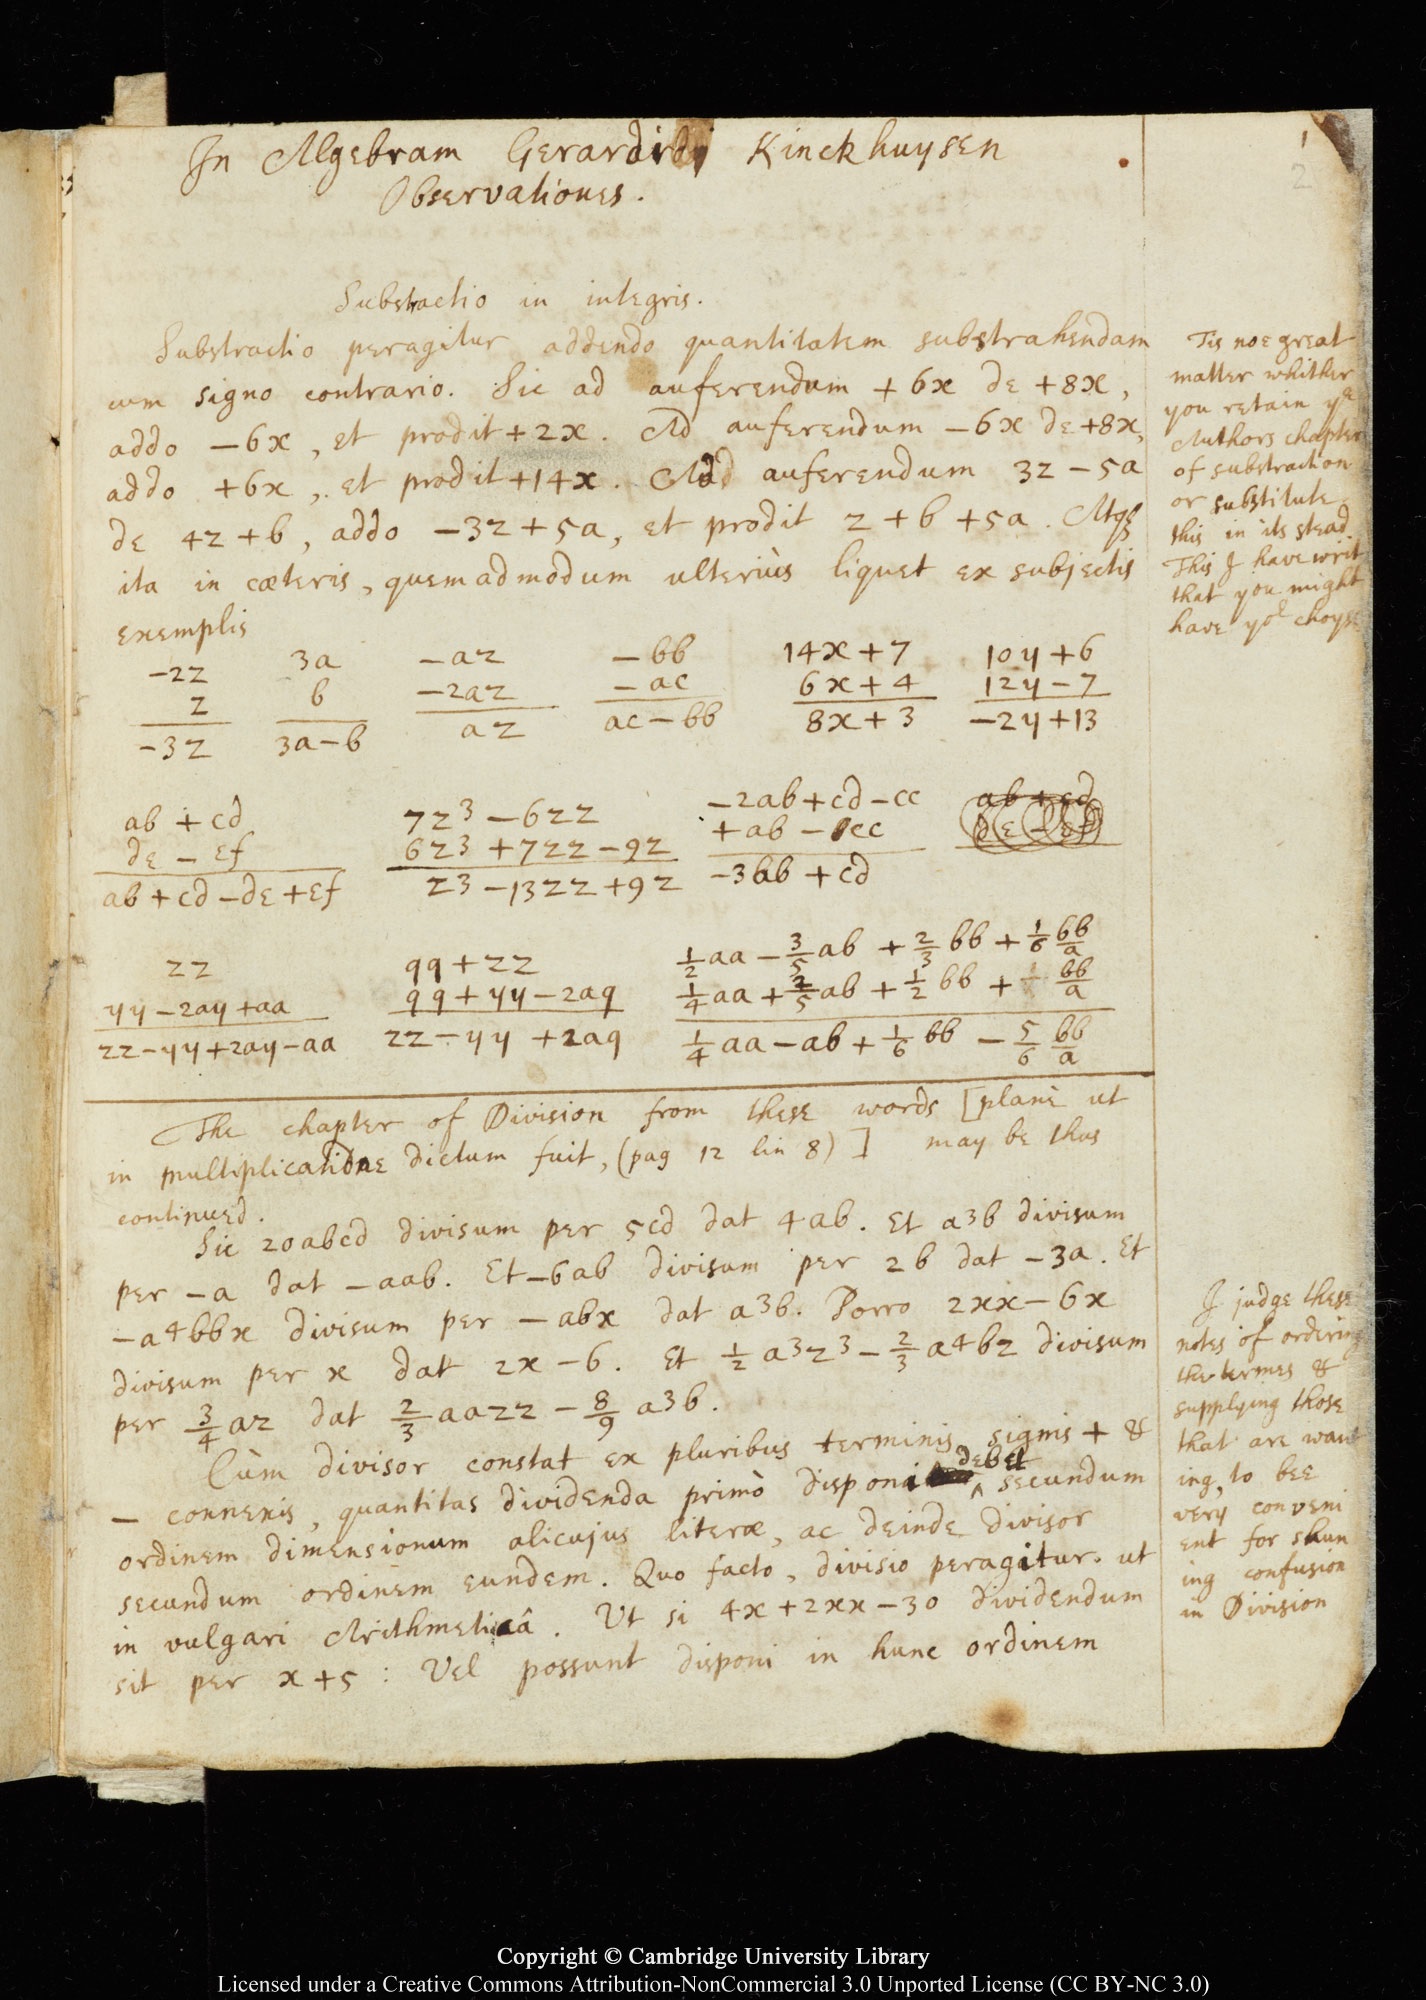 In Algebram Gerardi Kinckhuysen
Observationes.
1
2
Substractio in integris.
Substractio peragitur addendo quantitatem substrahendam
cum signo contrario. Sic ad auferendum +6x de +8x,
addo −6x, et prodit +2x. Ad auferendum −6x de +8x,
addo +6x, et prodit +14x. Ad auferendum 3z − 5a
de 4z + b, addo −3z + 5a, et prodit z + b + 5a. Atqꝫ
ita in cæteris, quemadmodum ulteriùs liquet ex subjectis
exemplis
Tis noe great
matter whither
you retain yͤ
Authors chapter
of substraction
or substitute
this in its stead.
This I have writ
that you might
have yoͬ choyse
−2z 3a −az −bb 14x+7 10y+6
z b −2az −ac 6x+4 12y−7
−3z 3a−b az ac−bb 8x+3 −2y+13
ab + cd 7z3 −6zz −2ab+cd−cc ab+cd
de − ef 6z3 +7zz −9z +ab −cc de − ef
ab+cd−de+ef z3 −13zz +9z −3bb +cd
zz qq+zz 1/2 aa − 3/5 ab + 2/3 bb + 1/6 bb/a
yy −2ay +aa qq+yy−2aq 1/4 aa + 2/5 ab + 1/2 bb + bb/a
zz−yy+2ay−aa zz−yy +2aq 1/4 aa − ab + 1/6 bb − 5/6 bb/a
The chapter of Division from these words [planè ut
in multiplicatione dictum fuit, (pag 12 lin 8)] may be thus
continued.
Sic 20abcd divisum per 5cd dat 4ab. Et a3b divisum
per −a dat −aab. Et −6ab divisum per 2b dat −3a. Et
−a4bbx divisum per −abx dat a3b. Porro 2xx − 6x
divisum per x dat 2x − 6. Et 1/2 a3z3 − 2/3 a4bz divisum
per 3/4 az dat 2/3 aazz − 8/9 a3b.
Cùm divisor constat ex pluribus terminis signis + &
− connexis, quantitas dividenda primò disponi debet secundum
ordinem dimensionum alicujus literæ, ac deinde divisor
secundum ordinem eundem. Quo facto, divisio peragitur ut
in vulgari Arithmeticâ. Ut si 4x + 2xx − 30 dividendum
sit per x + 5 : Vel possunt disponi in hunc ordinem
I judge these
notes of ordering
the termes &
supplying those
that are want
ing, to bee
very conveni
ent for shun
ing confusion
in Division
Copyright © Cambridge University Library
Licensed under a Creative Commons Attribution-NonCommercial 3.0 Unported License (CC BY-NC 3.0)